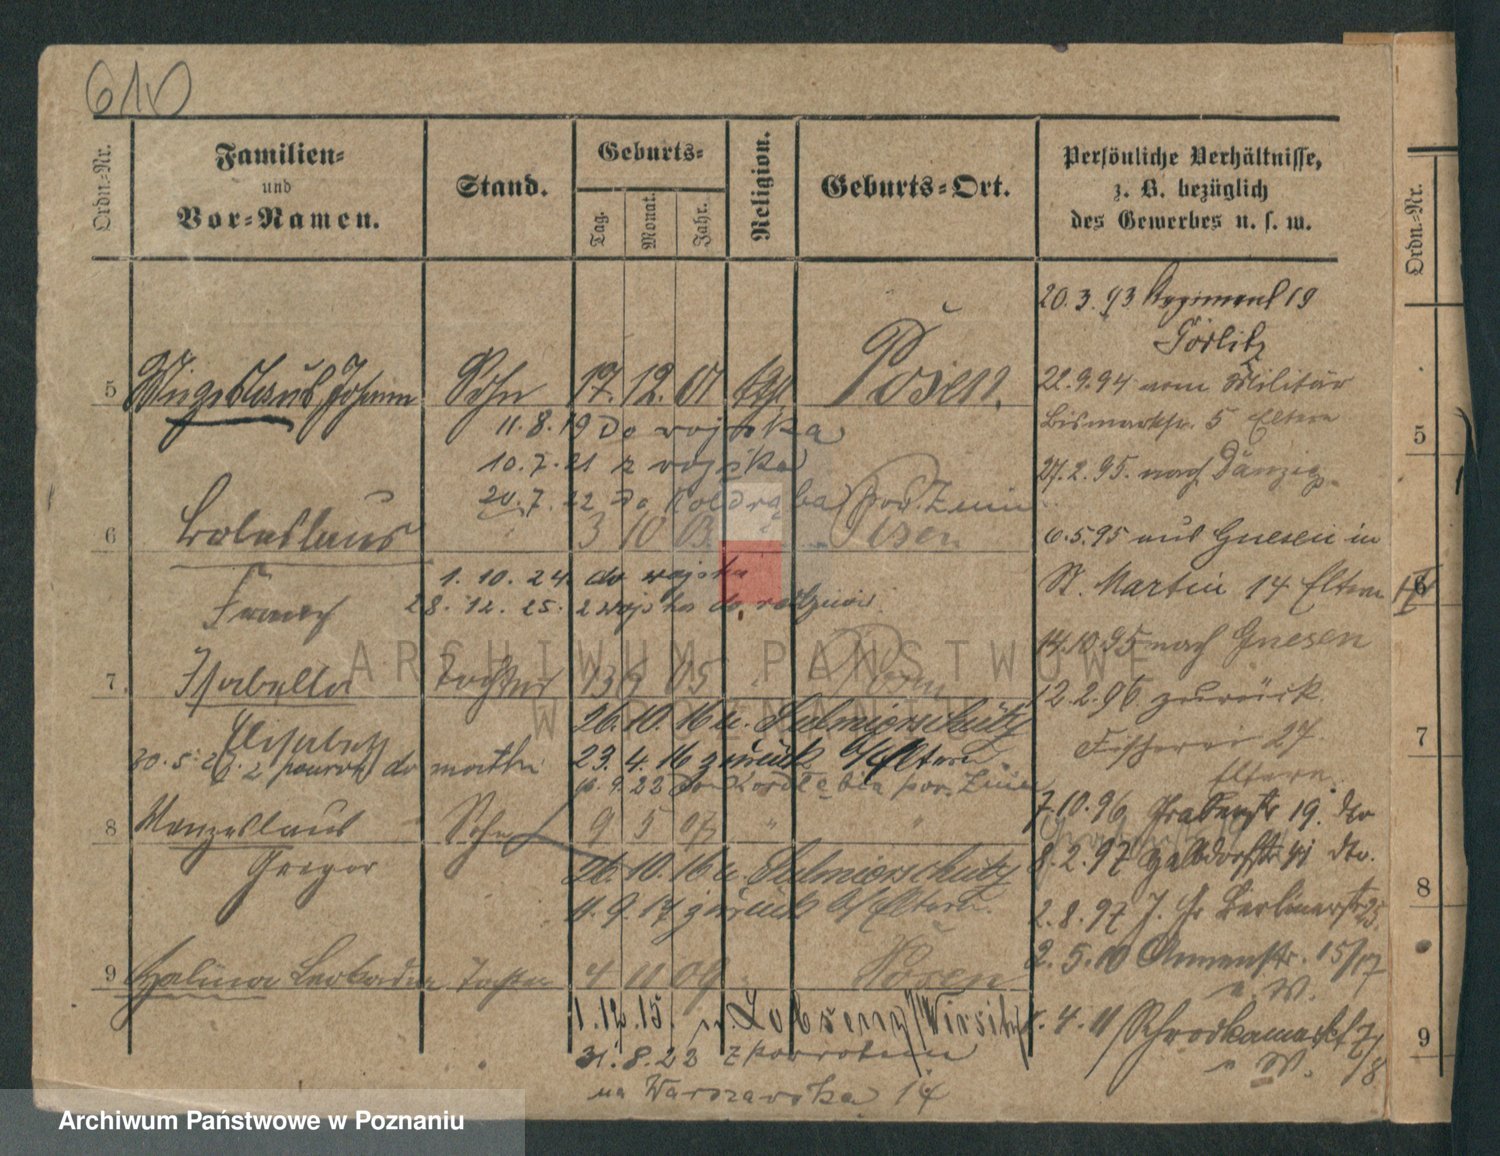 Ordn.=Nr.
Familien=
und
Vor=Namen.
Stand.
Geburts=
Tag.
Monat.
Jahr.
Religion.
Geburts=Ort.
Persönliche Verhältnisse,
z. B. bezüglich
des Gewerbes u. s. w.
20.3.93 Regiment 19
Görlitz
5 Johann Sohn 17. 12. 01 kth Posen.
22.9.94 vom Militär
Bismarkstr. 5 Eltern
11.8.19 do wojska
10.7.21 z wojska
27.2.95. nach Danzig
20.7.22 do Kołdrąba pow. Żnin
6 Boleslaus 3 10 03 Posen
6.5.95 aus Gnesen in
St. Martin 14 Eltern
1. 10. 24. do wojska
Franz 28. 12. 25. z wojska do rodziców
14.10.95 nach Gnesen
7. Isabella Tochter 13 9 05 Posen
12.2.96 zurück
26.10.16 n. Sulmierschütz
Fischerei 27.
Elisabeth
23. 4. 16 zurück b/Eltern
Eltern.
30.5.22. z powrotem do matki
7.10.96 Grabenstr 19. dto
8 Wenzeslaus Sohn 9 5 07 " "
8.2.97 Halbdorfstr 41 dto.
Gregor
26.10.16 n. Sulmierschütz
11.9.17 zurück b/Eltern.
2.8.97 J. Gr Berlinerstr
2.5.10 Annenstr. 15/17
n W.
9 Halina Leokadia Tochter 4 11 09 Posen
1.12.15. n. Lobsenz/Wirsitz
4.11 Schrodkamarkt 7/8
n W.
31.8.23 z powrotem
na Warszawska 14
Ordn.=Nr.
5
6
7
8
9
ARCHIWUM PAŃSTWOWE
W POZNANIU
Archiwum Państwowe w Poznaniu